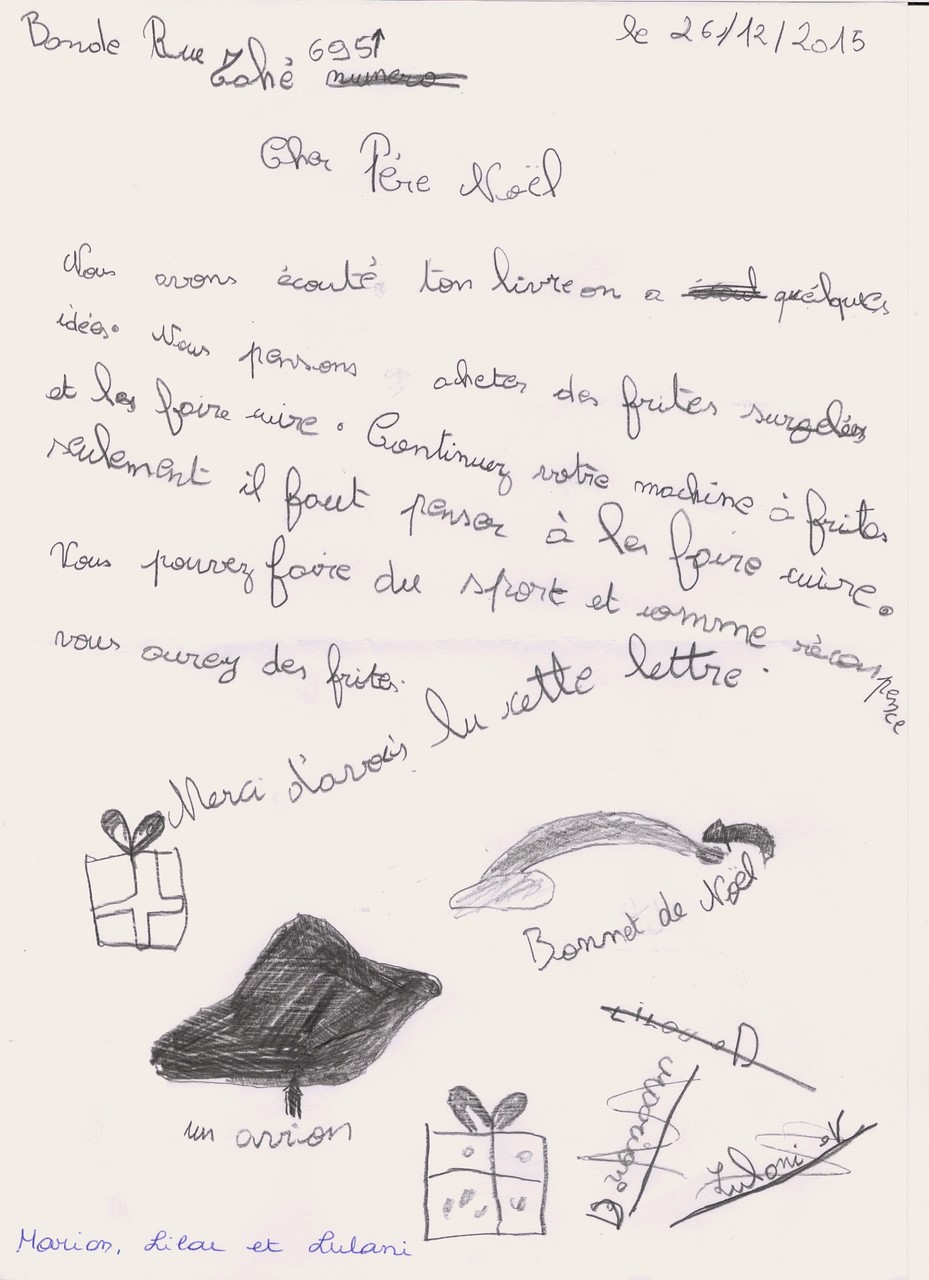 Bonde Rue Zohé 6951 numero
le 26/12/2015
Cher Père Noël
Nous avons écouté ton livre on a quélques
idées. Nous pensons acheter des frites surgelées
et les faire cuire. Continuez votre machine à frites
seulement il faut penser à les faire cuivre.
Vous pouvez faire du sport et comme récompence
vous aurez des frites.
Merci d'avoir lu cette lettre.
Bonnet de Noël
un avion
Lulani
Marion, Lilou et Lulani